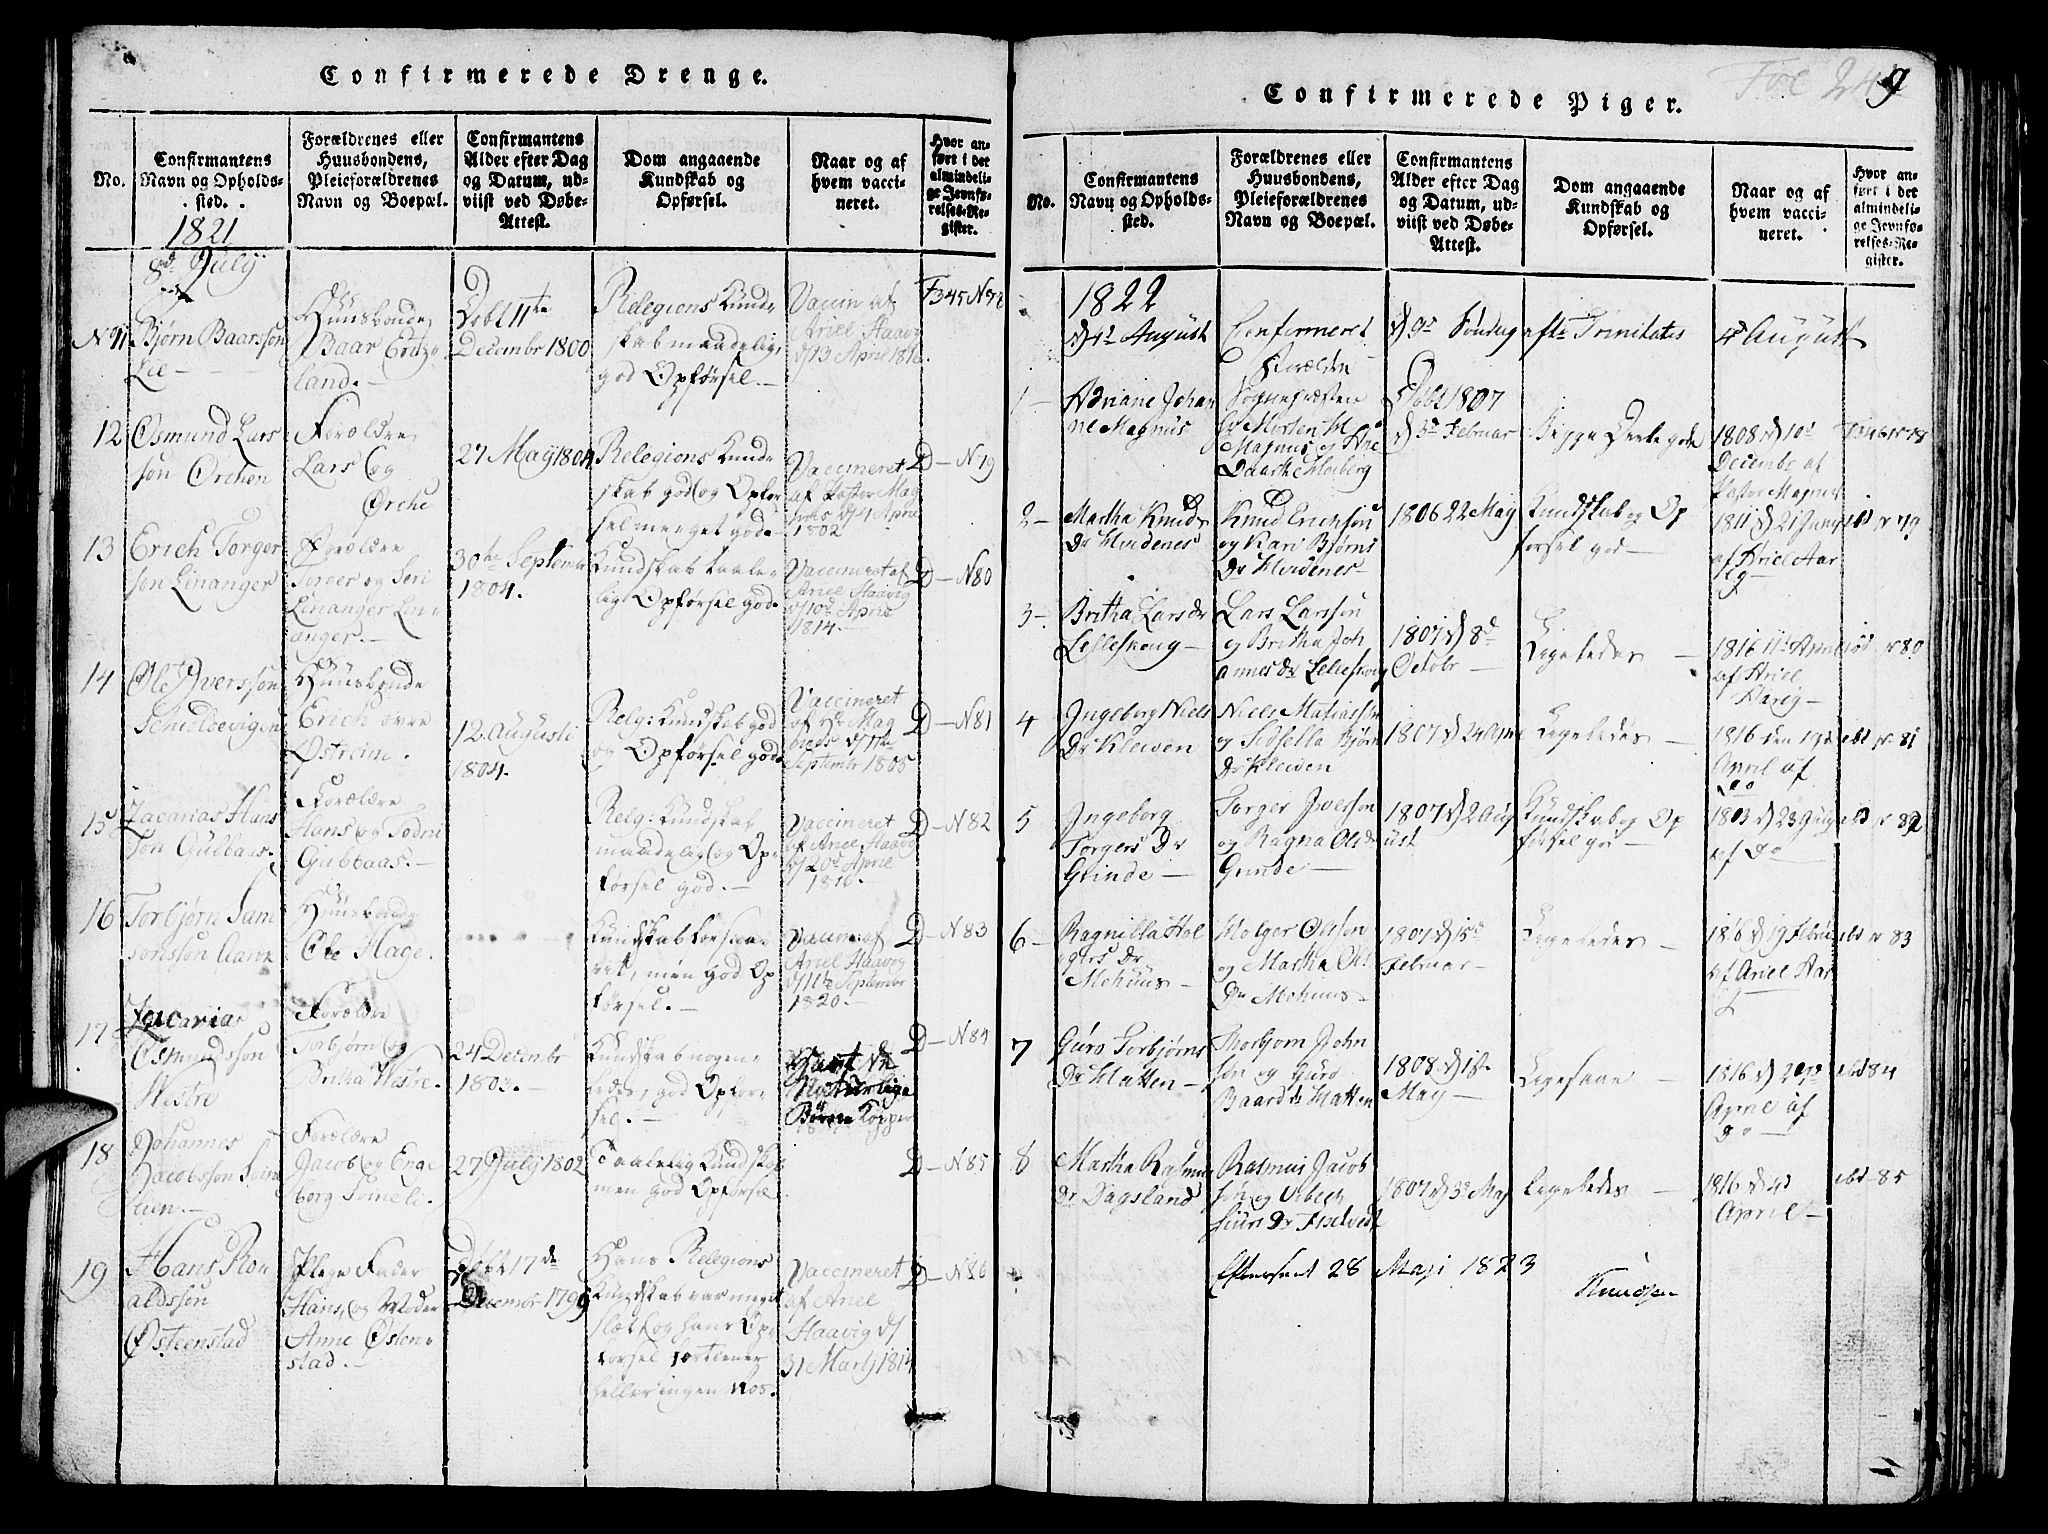 Confirmerede Drenge.
No.
Confirmantens
Navn og Opholds-
sted.
1821
8de July
Forældrenes eller
Huusbondens,
Pleieforældrenes
Navn og Boepæl.
Confirmantens
Alder efter Dag
og Datum, ud-
viist ved Døbe-
Attest.
Dom angaaende
Kundskab og
Opførsel.
Naar og af
hvem vacci-
neret.
Hvor an-
ført i det
almindeli-
ge Jevnfø-
relses-Re-
gister.
N 11
Bjørn Baarsson
Lie
Huusbonde
Baar
land.
Døbt 11te
Decembr 1800
Relegions Kund
skab maadelig
god Opførsel.
Vaccin af
Ariel Haavig
13 April 1816.
F 345 N 78
12
Osmund Lars
søn Ørchen
Forældre
Lars og
Ørche
27 May 1804
Relegions Kund
skab god og Opfør
sel meget gode
Vaccineret
af Pastor Mag
nus d 4 April
1802
D – N 79
13
Erich Torger
søn Linanger
Forældre
Torger og Seri
Linanger Lin
anger.
30te Septemr
1804.
Kundskab taale
lig Opførsel god
Vaccineret af
Ariel Haavig
d 10de April
1814.
D – N 80
14
Ole Iversson
Huusbonde
Erich øvre
Østreim.
12 Augusti
1804.
Relg: Kundskab god
og Opførsel god
Vaccineret
September 1805
D – N 81
15
Zacarias Hans
søn Gulbaas.
Forældre
Hans og
Gubbaas.
Relg: Kundskab
maadelig og Op
førsel god.
Vaccineret
af Ariel Haavig
d 20de April
1816.
D – N 82
16
Torbjørn Sam
sonsøn
Huusbonde
Ole Hage.
Kundskab
men god Op
førsel.
Vaccin: af
Ariel Haavig
d 11te Septembr
1820.
D – N 83
17
Zacarias
Osmundsson
Westre
Forældre
Torbjørn og
Britha Westre.
24 Decembr
1803.
Kundskab nogen
ledes, god Opfør
sel.
Havt de
Naturlige
Børne Kopper
D – N 84
18
Johannes
Jacobsson
Forældre
Jacob og Enge
borg
27 July 1802
Taalelig Kundskab
men god Opførsel
D – N 85
19
Hans Ron
aldsson
Østeenstad
Pleye Fader
Hans, og Moder
Anne Østen
stad.
Døbt 17de
Decembr 1799
Hans Relegions
Kundskab var meget
slæt og hans Op
førsel fortiener
heller ingen Roes.
Vaccineret
af Ariel
Haavig d
31 Martj 1814
D – N 86
Confirmerede Piger.
Fol 249
No.
Confirmantens
Navn og Opholds-
sted.
Forældrenes eller
Huusbondens,
Pleieforældrenes
Navn og Boepæl.
Confirmantens
Alder efter Dag
og Datum, ud-
viist ved Døbe-
Attest.
Dom angaaende
Kundskab og
Opførsel.
Naar og af
hvem vacci-
neret.
Hvor an-
ført i det
almindeli-
ge Jevnfø-
relses-Re-
gister.
1822
d 4de August Confirmeret d 9de Søndag efter Trinitatis 4de August
1
Adriane Johan
ne Magnus
Forældre
Sognepræsten
Hr Morten M
Magnus og Ane
Daarthe Meiberg
Døbt 1807
d 3de Februar
Begge Deele gode
1808 d 10de
Decembr af
Pastor Magnus
346 N 78
2
Martha Knuds
Dr Hvidenes
Knud Erichsøn
og Kari Bjørns
Dr Hvidenes
1806 22 May
Kundskab og Op
førsel god
1811 d 21 Juny
af Ariel Aar
ibd N 79
3
Britha Lars dr
Lelleskoug
Lars Larsøn
og Britha Joh
annes dr Lelleskoug
1807 d 8de
Octobr
Ligeledes
1816 11te April
af Ariel
ibd N 80
4
Ingeborg Niels
Dr Kleiven
Niels Matiassøn
og Sidsella Bjørn
Dr Kleiven
1807 d 24
Ligeledes
1816 den 19de
April af
Do
ibd N 81
5
Ingeborg
Torgers Dr
Grinde
Torger Iversøn
og Ragna Ols dr
Grinde
1807 d 2 Aug
ust
Kundskab og Op
førsel god
af Do
ibd N 82
6
Ragnilla Hol
gers Dr
Mehuus
Holger Olsøn
og Martha Ols
Dr Mehuus
1807 d 15de
Februar
Ligeledes
1816 d 19 Februar
af Ariel Aar
ibd N 83
7
Guro Torbjørns
Dr Hatten
Thorbjørn John
søn og Guro
Baards dr Hatten
1808 d 1ste
May
Ligesaae
1816 d
April af
Do
ibd 84
8
Martha Rasmus
Dr Dagsland
Rasmus Jacob
søn og
Siurs Dr
1807 d 3de May
Ligeledes
1816 d 4de
April
ibd 85
Efterseet 28 Maji 1823
Knudsen